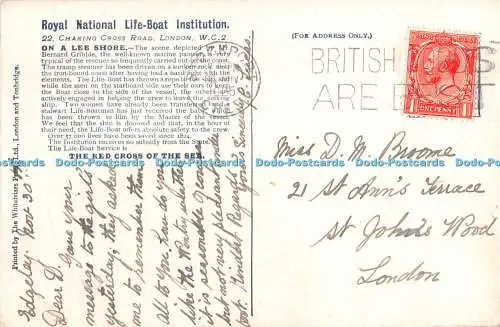 Royal National Life-Boat Institution.
22, CHARING CROSS ROAD, LONDON, W.C.2.
ON A LEE SHORE.—The scene depicted by
Bernard Gribble, the well-known marine painter, is very
typical of the rescues so frequently carried out off the coast.
The tramp steamer has been driven on a sunken rock near
the iron-bound coast after having had a hard
elements. The Life-Boat has thrown a rope on to the ship, and
while the men on the starboard side use their oars to keep
the Boat close to the side of the vessel, the others are
actively engaged in helping the crew to leave the
ship. Two women have already been transferred and a
stalwart Lifeboatman has just received the baby which
has been thrown to him by the Master of the vessel.
We feel that the ship is doomed and that, in the hour of
their need, the Life-Boat offers absolute safety to the crew.
Over 57,000 lives have been saved since 1824.
The Institution receives no subsidy from the State.
The Life-Boat Service is
THE RED CROSS OF THE SEA.
Printed by The Whitefriars Press, Ltd., London and Tonbridge.
(FOR ADDRESS ONLY.)
BRITISH
ARE
ONE PENNY
Edgeley Nov 30
Dear D. Gave your
message to the girls
yesterday, they asked
me to remember them
all to you. How do you
like the Winter
it is seasonable of course
but not very pleasant under
foot. Kindest Regards
Yours Sincerely
Miss D. M. Broome
21 St Ann's Terrace
St John's Wood
London
Dodo-Postcards Dodo-Postcards Dodo-Postcards Dodo-Postcards Dodo-Postcards Dodo-Postcards